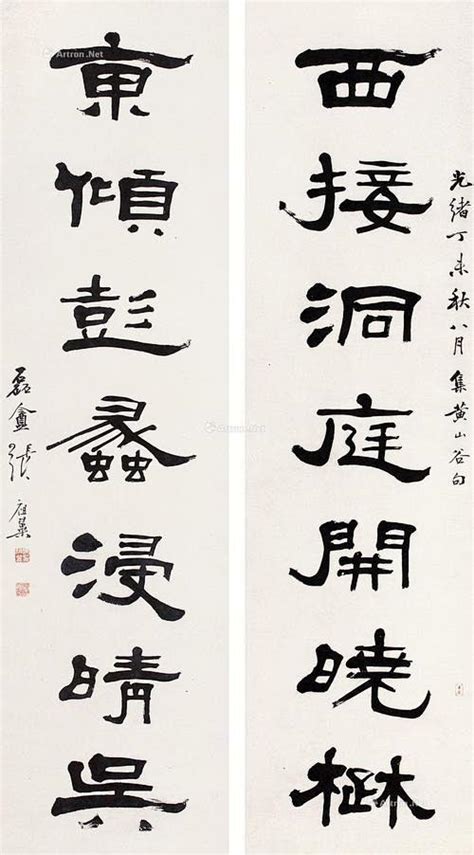 光緒丁未秋八月集黃山谷句
西接洞庭開曉楚
東傾彭蠡浸晴吳
磊盦張祖翼
Artron.Net